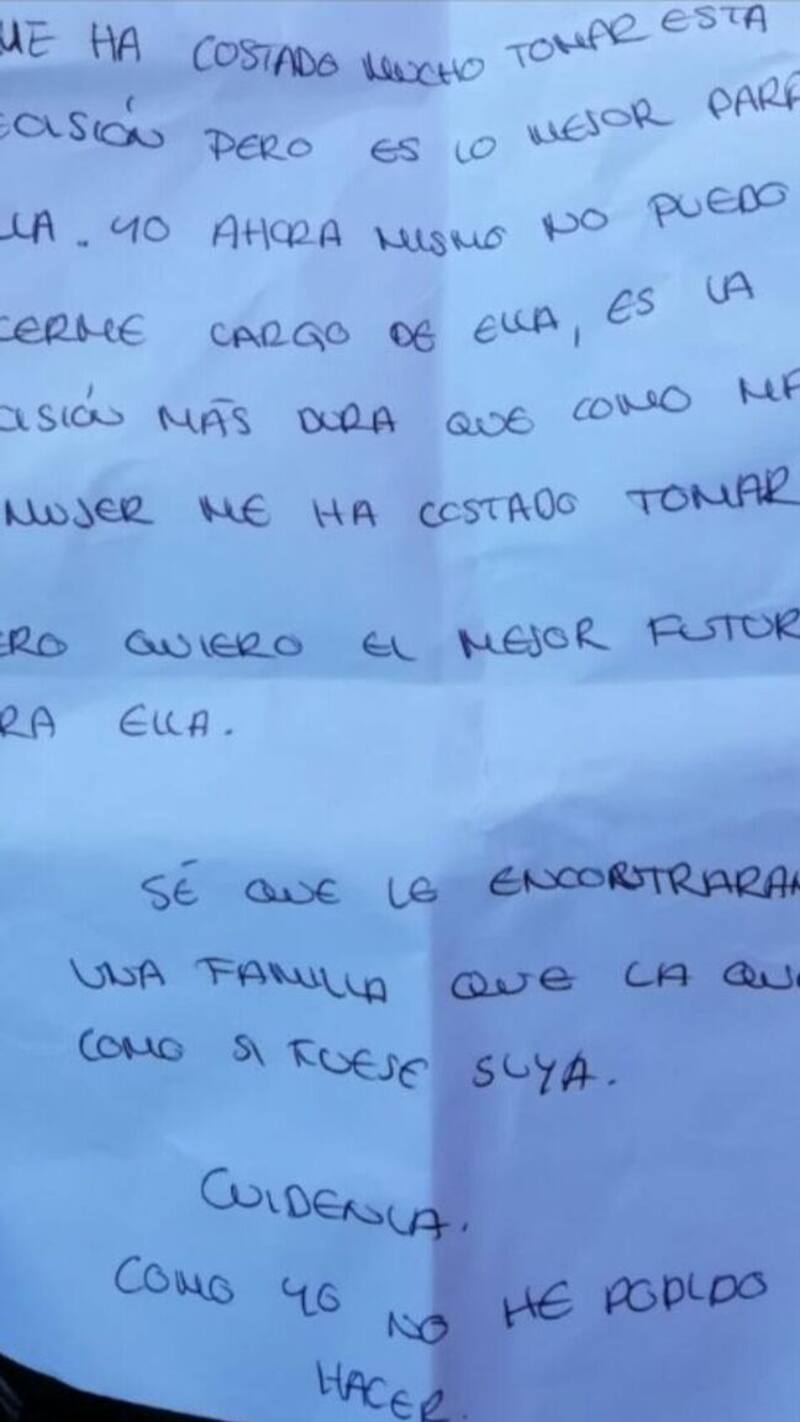 ME HA COSTADO MUCHO TOMAR ESTA
ECISIÓN PERO ES LO MEJOR PARA
LLA. YO AHORA MISMO NO PUEDO
CERME CARGO DE ELLA, ES LA
CISIÓN MÁS DURA QUE COMO MA
MUJER ME HA COSTADO TOMAR
ERO QUIERO EL MEJOR FUTUR
RA ELLA.
SÉ QUE LE ENCONTRARAN
UNA FAMILIA QUE LA QU
COMO SI FUESE SUYA.
CUIDENLA.
COMO YO NO HE PODIDO
HACER.